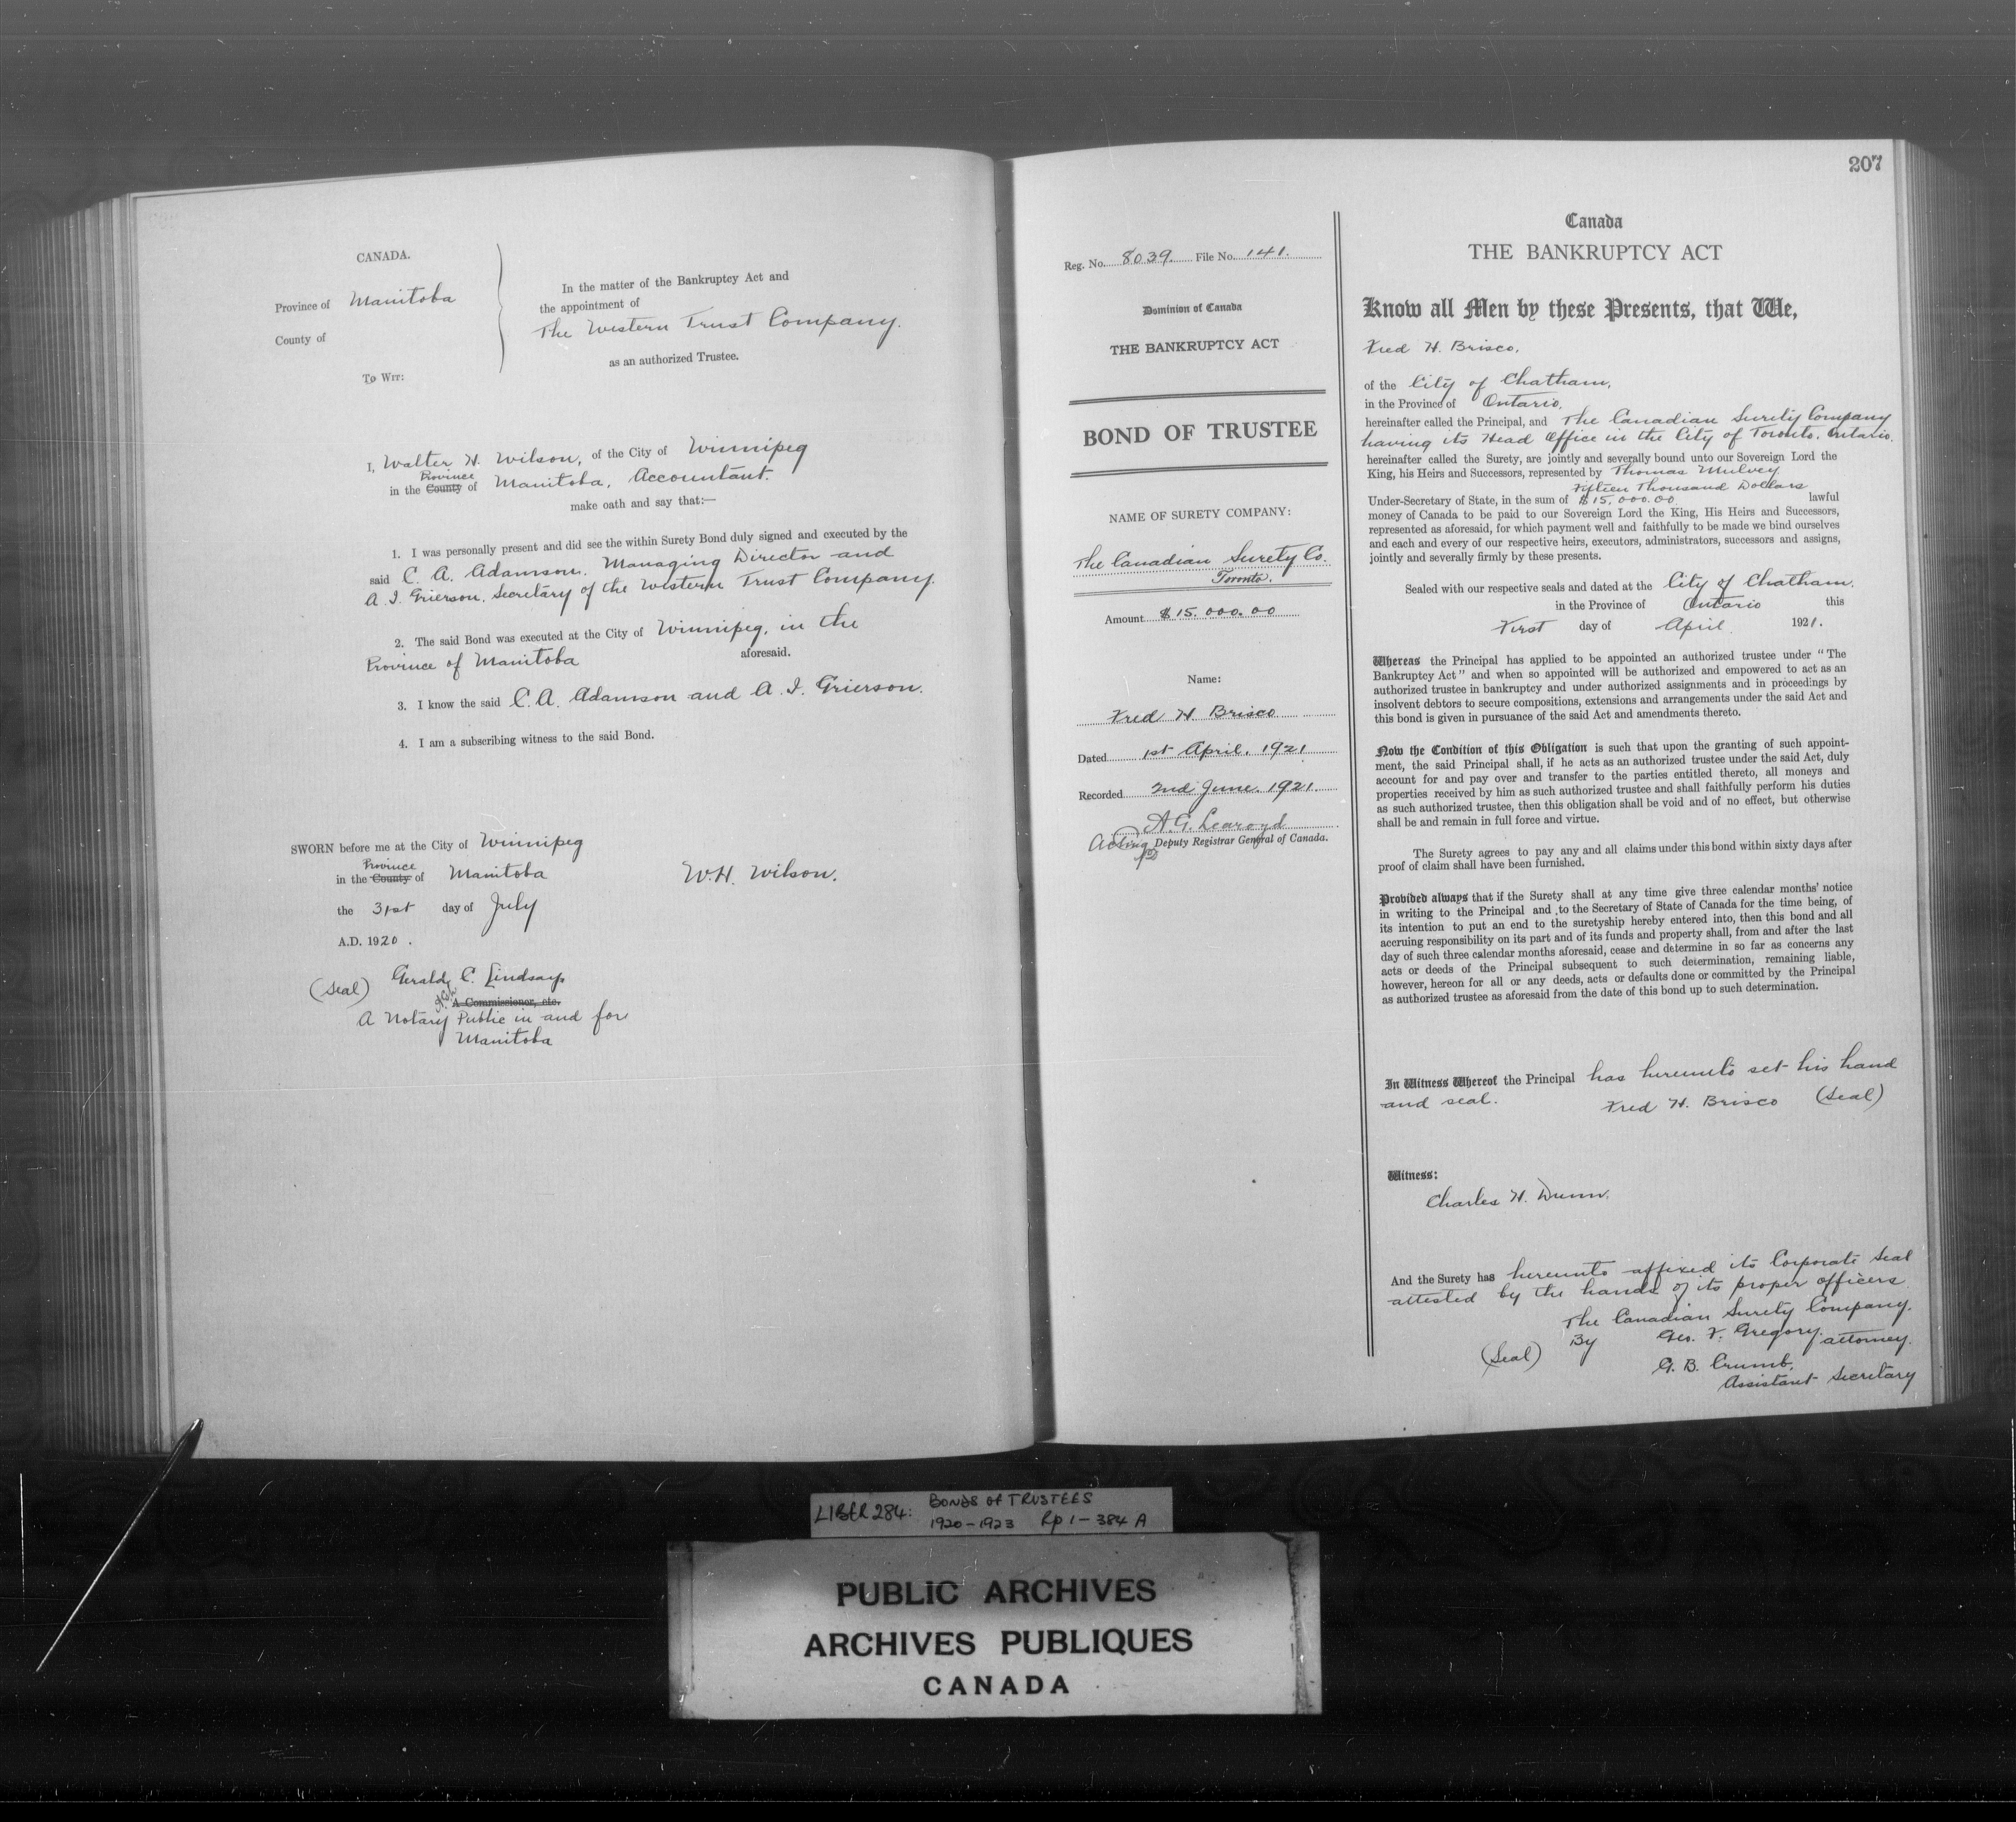 CANADA.
Province of Manitoba
County of
To Wit:
In the matter of the Bankruptcy Act and
the appointment of
The Western Trust Company.
as an authorized Trustee.
I, Walter H. Wilson, of the City of Winnipeg
Province
in the County of Manitoba, Accountant.
make oath and say that:—
1. I was personally present and did see the within Surety Bond duly signed and executed by the
said C. A. Adamson. Managing Director and
A. I. Grierson. Secretary of the Western Trust Company.
2. The said Bond was executed at the City of Winnipeg, in the
Province of Manitoba aforesaid.
3. I know the said C. A. Adamson and A. I. Grierson.
4. I am a subscribing witness to the said Bond.
SWORN before me at the City of Winnipeg
Province
in the County of Manitoba
the 31st day of July
A.D. 1920.
W.H. Wilson.
(Seal) Gerald C. Lindsay
A Commissioner, etc.
A Notary Public in and for
Manitoba
207
Reg. No. 8039. File No. 141.
Dominion of Canada
THE BANKRUPTCY ACT
BOND OF TRUSTEE
NAME OF SURETY COMPANY:
The Canadian Surety Co.
Toronto.
Amount $15.000.00
Name:
Fred H. Brisco
Dated 1st April. 1921
Recorded 2nd June. 1921.
A. G. Learoyd
Acting Deputy Registrar General of Canada.
Canada
THE BANKRUPTCY ACT
Know all Men by these Presents, that We,
Fred H. Brisco,
of the City of Chatham,
in the Province of Ontario,
hereinafter called the Principal, and The Canadian Surety Company
having its Head Office in the City of Toronto. Ontario.
hereinafter called the Surety, are jointly and severally bound unto our Sovereign Lord the
King, his Heirs and Successors, represented by Thomas Mulvey
Fifteen Thousand Dollars
Under-Secretary of State, in the sum of $15.000.00 lawful
money of Canada to be paid to our Sovereign Lord the King, His Heirs and Successors,
represented as aforesaid, for which payment well and faithfully to be made we bind ourselves
and each and every of our respective heirs, executors, administrators, successors and assigns,
jointly and severally firmly by these presents.
Sealed with our respective seals and dated at the City of Chatham.
in the Province of Ontario this
First day of April. 1921.
Whereas the Principal has applied to be appointed an authorized trustee under "The
Bankruptcy Act" and when so appointed will be authorized and empowered to act as an
authorized trustee in bankruptcy and under authorized assignments and in proceedings by
insolvent debtors to secure compositions, extensions and arrangements under the said Act and
this bond is given in pursuance of the said Act and amendments thereto.
Now the Condition of this Obligation is such that upon the granting of such appoint-
ment, the said Principal shall, if he acts as an authorized trustee under the said Act, duly
account for and pay over and transfer to the parties entitled thereto, all moneys and
properties received by him as such authorized trustee and shall faithfully perform his duties
as such authorized trustee, then this obligation shall be void and of no effect, but otherwise
shall be and remain in full force and virtue.
The Surety agrees to pay any and all claims under this bond within sixty days after
proof of claim shall have been furnished.
Provided always that if the Surety shall at any time give three calendar months' notice
in writing to the Principal and to the Secretary of State of Canada for the time being, of
its intention to put an end to the suretyship hereby entered into, then this bond and all
accruing responsibility on its part and of its funds and property shall, from and after the last
day of such three calendar months aforesaid, cease and determine in so far as concerns any
acts or deeds of the Principal subsequent to such determination, remaining liable,
however, hereon for all or any deeds, acts or defaults done or committed by the Principal
as authorized trustee as aforesaid from the date of this bond up to such determination.
In Witness Whereof the Principal has hereunto set his hand
and seal. Fred H. Brisco (Seal)
Witness:
Charles H. Dunn.
And the Surety has hereunto affixed its Corporate Seal
attested by the hands of its proper officers
The Canadian Surety Company.
By Geo. F. Gregory, attorney.
(Seal) G. B. Crumb.
Assistant Secretary
LIBER 284: BONDS OF TRUSTEES
1920-1923 Rp 1-384 A
PUBLIC ARCHIVES
ARCHIVES PUBLIQUES
CANADA